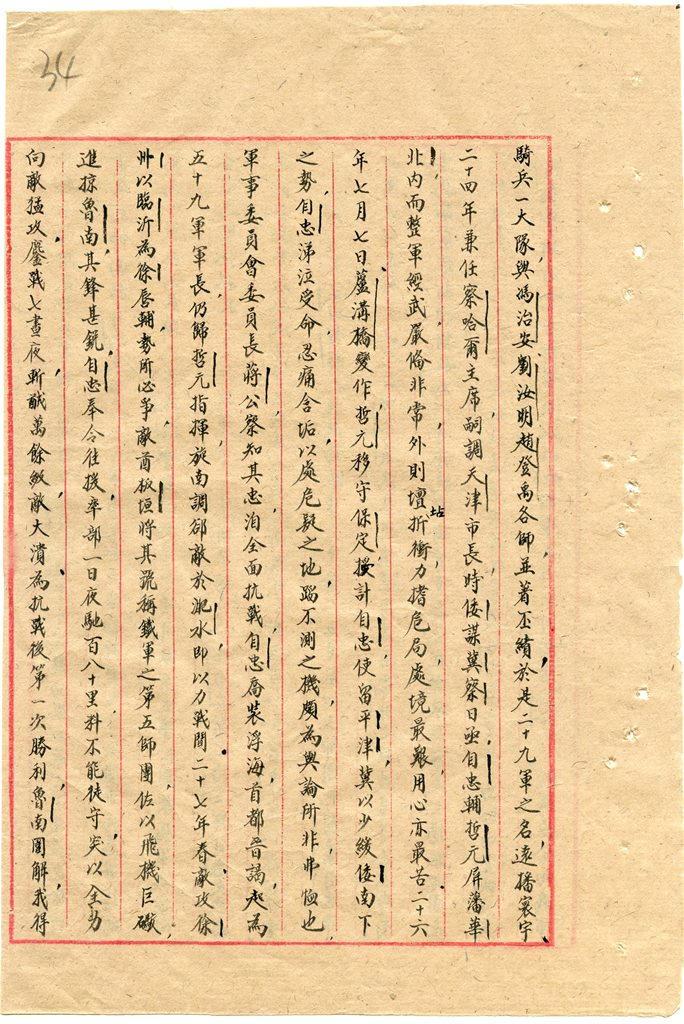 34
騎兵一大隊,與馮治安劉汝明趙登禹各師,並著丕績,於是二十九軍之名,遠播寰宇
二十四年兼任察哈爾主席,嗣調天津市長,時倭謀冀察日亟,自忠輔哲元屏藩華
北,內而整軍經武,嚴備非常,外則壇坫折衝,力搘危局,處境最艱,用心亦最苦,二十六
年七月七日,蘆溝橋變作,哲元移守保定,援計自忠,使留平津,冀以少緩倭南下
之勢,自忠涕泣受命,忍痛含垢,以處危疑之地,蹈不測之機,頗為輿論所非,弗恤也,
軍事委員會委員長蔣公察知其忠,洎全面抗戰,自忠喬裝浮海,首都晉謁,起為
五十九軍軍長,仍歸哲元指揮,旋南調,郤敵於淝水,即以力戰聞,二十七年春,敵攻徐
州,以臨沂為徐唇輔,勢所必爭,敵酋板垣將其號稱鐵軍之第五師團,佐以飛機巨礮,
進掠魯南,其鋒甚銳,自忠奉令往援,率部一日夜馳百八十里,料不能徒守,突以全力
向敵猛攻,鏖戰七晝夜,斬馘萬餘級,敵大潰,為抗戰後第一次勝利,魯南圍解,我得